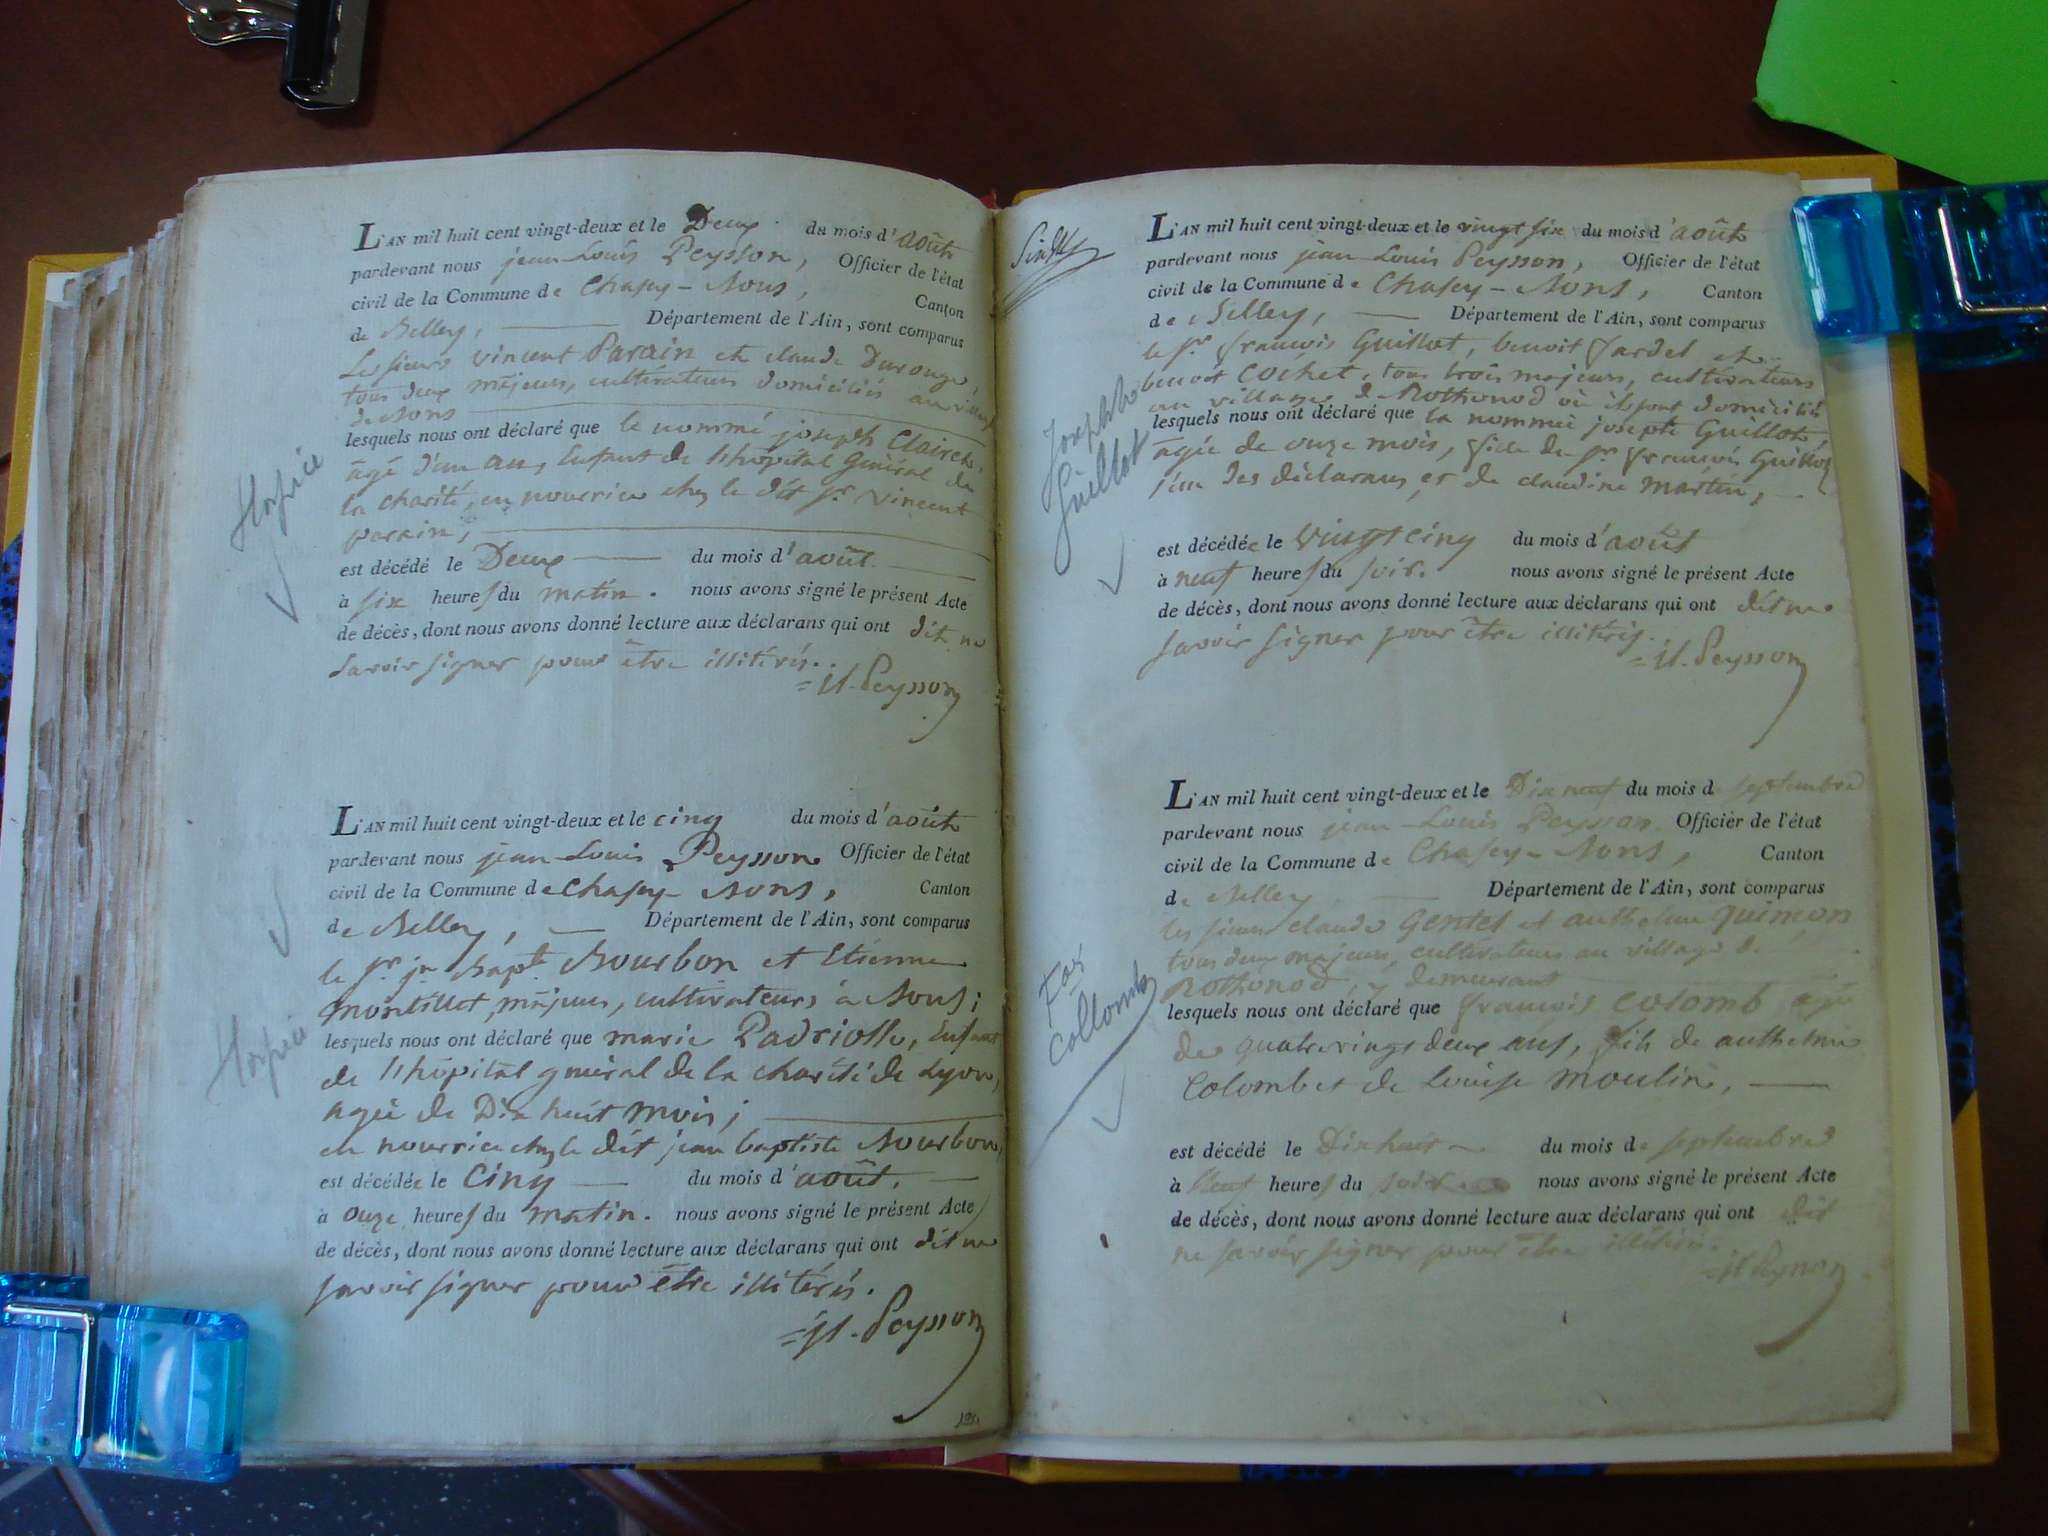 L'AN mil huit cent vingt-deux et le Deux du mois d'août
pardevant nous jean Louis Peysson, Officier de l'état
civil de la Commune de Chasey-Bons, Canton
de Belley, Département de l'Ain, sont comparus
Les sieurs vincent Parain et claude
tous deux majeurs, cultivateurs domiciliés au village
de Bons
lesquels nous ont déclaré que le nommé joseph Claireh,
agé d'un an, Enfant de l'hôpital Général de
la charité, en nourrice chez le dit sr. vincent
parain,
Hospice
est décédé le Deux du mois d'août.
à six heures du matin. nous avons signé le présent Acte
de décès, dont nous avons donné lecture aux déclarans qui ont dit ne
savoir signer pour être illitérés.
=jl. Peysson
L'AN mil huit cent vingt-deux et le cinq du mois d'août
pardevant nous jean Louis Peysson Officier de l'état
civil de la Commune de Chasey-Bons, Canton
de Belley, Département de l'Ain, sont comparus
le sr. jn. Bapt. Bourbon et Etienne
montillet, majeurs, cultivateurs à Bons;
Hospice
lesquels nous ont déclaré que marie Padriolle, Enfant
de l'hôpital général de la charité de Lyon,
agée de Dix huit mois;
en nourrice chez le dit jean baptiste Bourbon,
est décédée le Cinq du mois d'août.
à onze heures du matin. nous avons signé le présent Acte
de décès, dont nous avons donné lecture aux déclarans qui ont dit ne
savoir signer pour être illitérés.
=jl. Peysson
L'AN mil huit cent vingt-deux et le vingt six du mois d'août
pardevant nous jean Louis Peysson, Officier de l'état
civil de la Commune de Chasey-Bons, Canton
de Belley, Département de l'Ain, sont comparus
le sr. françois Guillot, benoit jardel et
benoit Cochet, tous trois majeurs, cultivateurs
au village de Rothonod où ils sont domiciliés
lesquels nous ont déclaré que la nommée josephte Guillot,
agée de onze mois, fille de sr. françois Guillot
l'un des déclarans et de claudine martin,
Josephte
Guillot
est décédée le Vingt cinq du mois d'août
à neuf heures du soir. nous avons signé le présent Acte
de décès, dont nous avons donné lecture aux déclarans qui ont dit ne
savoir signer pour être illitérés.
=jl. Peysson
L'AN mil huit cent vingt-deux et le Dix neuf du mois de septembre
pardevant nous jean Louis Peysson Officier de l'état
civil de la Commune de Chasey-Bons, Canton
de Belley, Département de l'Ain, sont comparus
les sieurs claude Gentet et anthelme quinson
tous deux majeurs, cultivateurs au village de
Rothonod, y demeurant
lesquels nous ont déclaré que françois Colomb, agé
de quatrevingt deux ans, fils de anthelme
Colomb et de Louise moulin,
Fois
Collomb
est décédé le Dix huit du mois de septembre
à Neuf heures du soir nous avons signé le présent Acte
de décès, dont nous avons donné lecture aux déclarans qui ont dit
ne savoir signer pour être illitérés.
=jl Peysson